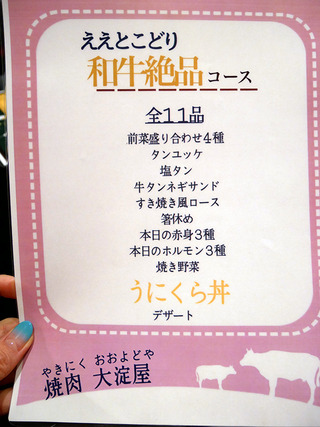 ええとこどり
和牛絶品コース
全11品
前菜盛り合わせ4種
タンユッケ
塩タン
牛タンネギサンド
すき焼き風ロース
箸休め
本日の赤身3種
本日のホルモン3種
焼き野菜
うにくら丼
デザート
やきにく おおよどや
焼肉 大淀屋